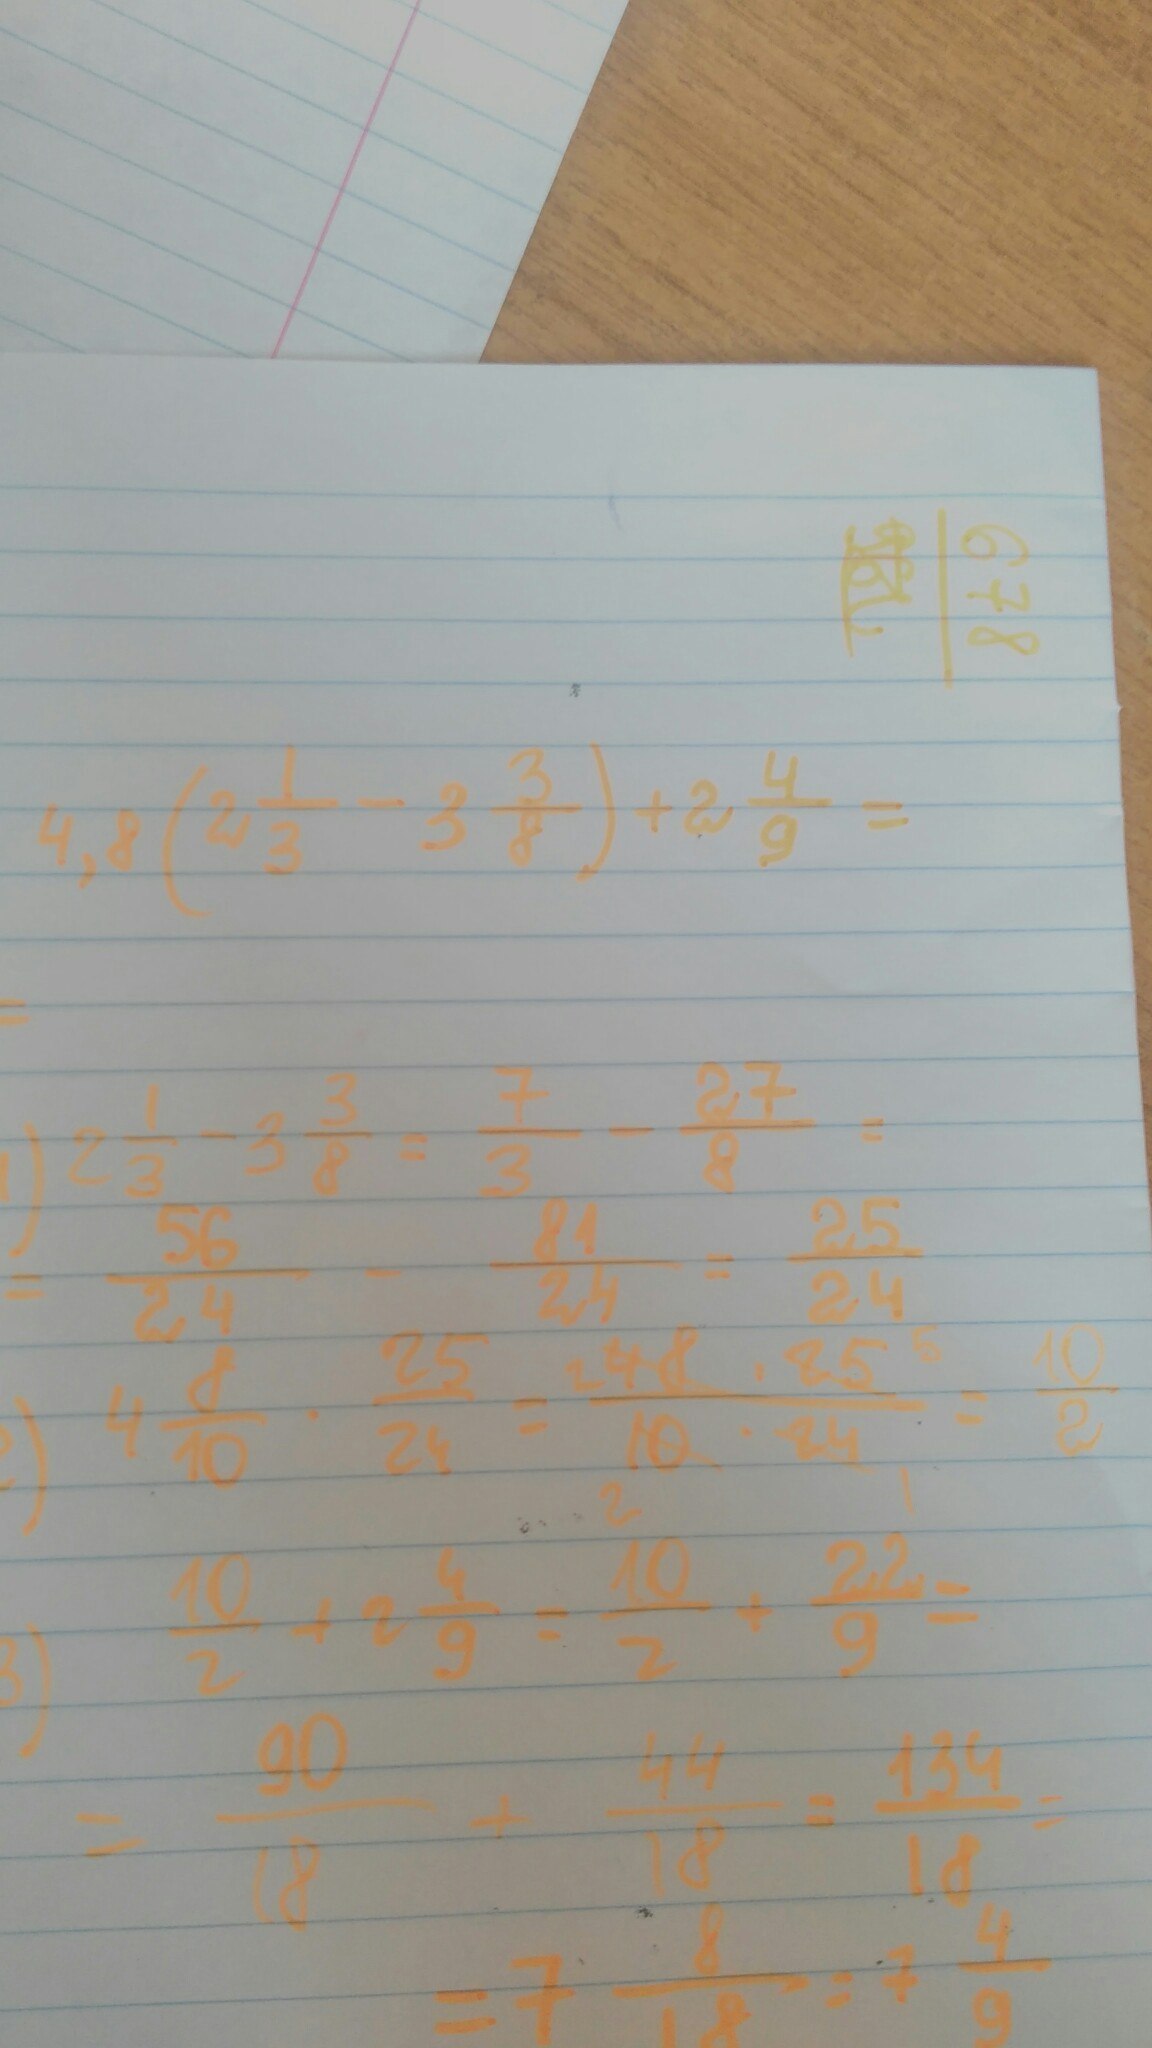 678
4,8(2 1/3 - 3 3/8) + 2 4/9 =
=
1) 2 1/3 - 3 3/8 = 7/3 - 27/8 =
= 56/24 - 81/24 = 25/24
2) 4 8/10 · 25/24 = 2 48 · 25 5 / 10 · 24 = 10/2
2 1
3) 10/2 + 2 4/9 = 10/2 + 22/9 =
= 90/18 + 44/18 = 134/18 =
= 7 8/18 = 7 4/9